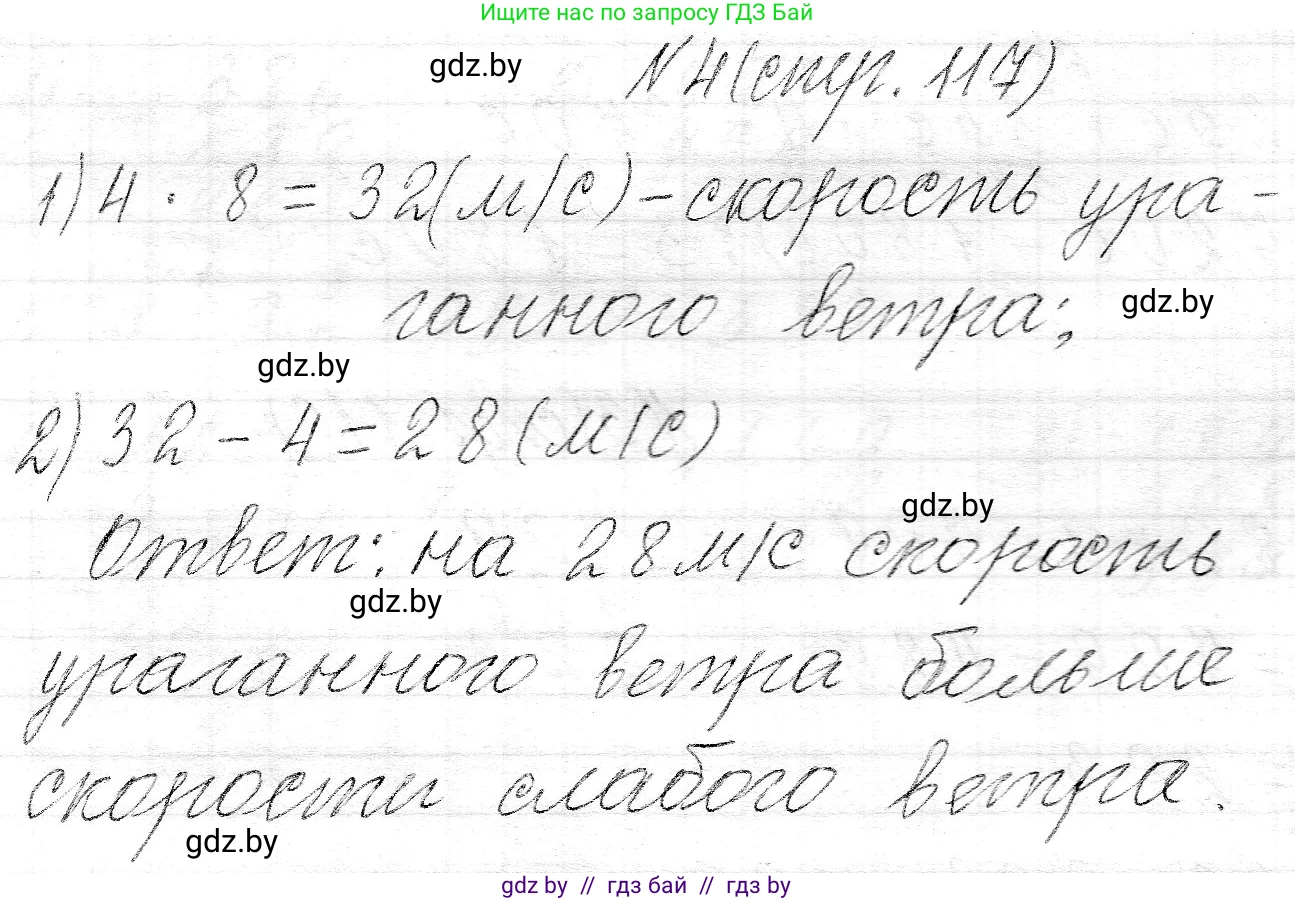 Ищите нас по запросу ГДЗ Бай
gdz.by
N 4 (стр. 117)
1) 4 · 8 = 32 (м/с) - скорость ура-
ганного ветра;
gdz.by
gdz.by
2) 32 - 4 = 28 (м/с)
gdz.by
Ответ: на 28 м/с скорость
gdz.by
ураганного ветра больше
скорости слабого ветра.
gdz.by
gdz by // гдз бай // гдз by